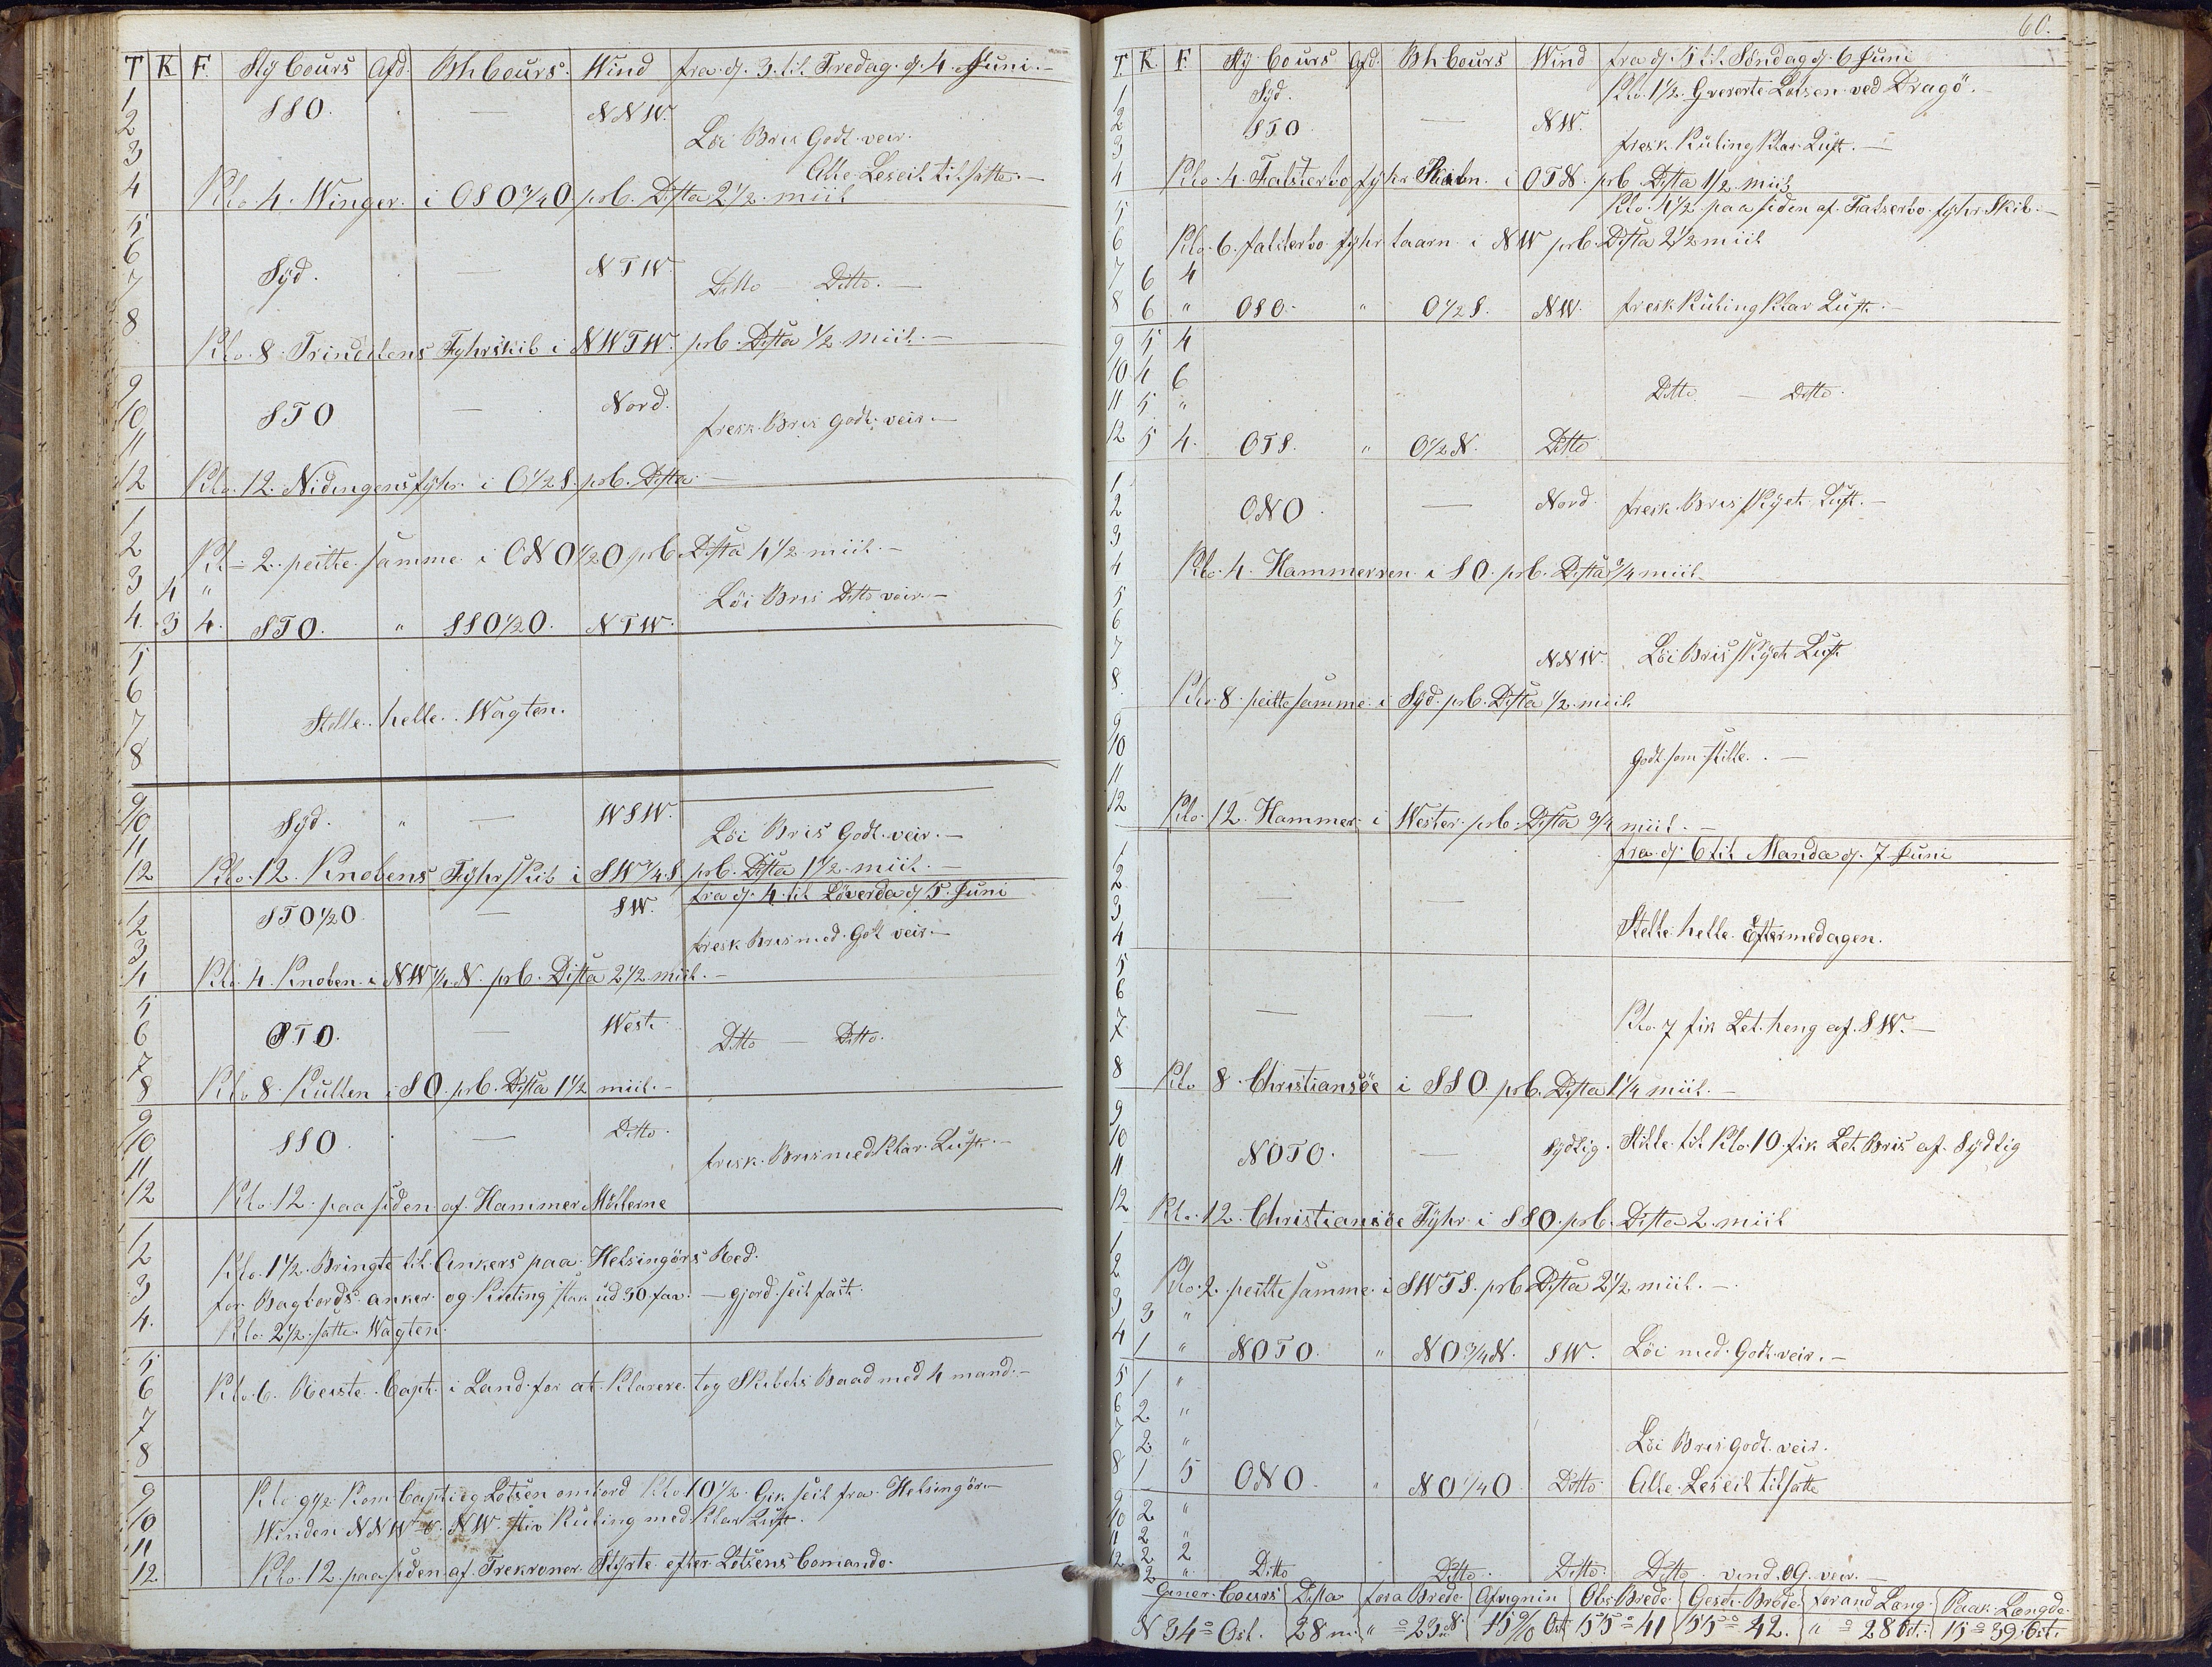 T K F Sty Cours Afd. Bh Cours. Wind fra d. 3. til Fredag. d. 4. Juni.-
1 SSO. — NNW.
2 Löi Bris Godt veir.
3 Alle Leseil tilsatte.-
4 Klo 4. Winger. i OSO 3/4 O prb. Dista 2 1/2 miil
5
6
7 Syd. — NTW. Ditto Ditto.-
8 Klo. 8. Trindelens Fyhrskib i NWTW. prb. Dista 1/2 Miil.-
9
10 STO — Nord. fresk. Bris godt veir.-
11
12 Klo. 12. Nidingens fyhr. i O 1/2 S. prb. Dista -
1
2 Klo- 2. peilte samme i ONO 1/2 O prb Dista 4 1/2 miil.-
3 4 "
4. 3 4. STO. " SSO 1/2 O. NTW. Löi Bris Ditto veir.-
5
6
7 Stille. helle. Wagten.
8
9
10 Syd. " — WSW. Löi Bris Godt veir.-
11
12 Klo. 12. Knobens FyhrSkib i SW 3/4 S prb. Dista 1 1/2 miil.-
fra d. 4. til Löverda d 5. Juni
1
2 STO 1/2 O — SW. fresk Bris med. Got veir.-
3
4 Klo. 4. Knoben i NW 1/4. N. prb. Dista 2 1/2 miil.-
5
6 OTO. — West. Ditto — Ditto.
7
8 Klo 8. Kullen i SO. prb. Dista 1 1/2 miil.-
9
10 SSO. — Ditto. frisk. Bris med Klar. Luft.-
11
12 Klo. 12. paa siden af. Hammer Möllerne
1
2 Klo. 1 1/2. Bringte til Ankers paa. Helsingörs Red.
3 for. Bagbords anker. og Kieting stak ud 30. fav. — gjord. seil fast.
4. Klo. 2 1/2. satte Wagten.
5
6 Klo. 6. Reiste. Capt. i Land. for at. Klarere. tog Skibets Baad med 4 mand.-
7
8
9 Klo. 9 1/2. Kom Capt. og Lotsen ombord Klo. 10 1/2. Gik seil fra. Helsingör.-
10 Winden NNW NW. stiv Kuling med. Klar Luft.
11
12 Klo. 12. paa siden af. Trekroner Styrte efter Lotsens Comando.
60.
T. K. F. Sty. Cours Afd. Bh Cours Wind fra d. 5 til Söndag d. 6 Juni
1 Syd. Klo. 1 1/2. Lotsen. ved Dragö.-
2 STO — NW.
3 fresk Kuling Klar Luft.-
4 Klo. 4. Falsterbo fyhr i OTN. prb. Dista 1/2 miil
5 Klo. 4 1/2 paa siden af. Falserbo fyhr Skib.-
6 Klo. 6. falsterbo fyhr taarn i NW prb. Dista 2 1/2 miil
7 6 4
8 6 " OSO. " O 1/2 S. NW. fresk Kuling Klar Luft.-
9 5 4
10 4 6 Ditto — Ditto.
11 5 "
12 5 4. OTS. " O 1/2 N. Ditto
1
2 ONO. — Nord fresk Bris Skyet Luft.-
3
4 Klo. 4. Hammeren i SO. prb. Dista 3/4 miil
5
6
7 NNW. Löi Bris Skyet Luft
8. Klo. 8. peilte samme. i Syd. prb. Dista 1/2 miil
9
10 Godt som stille.-
11
12 Klo. 12. Hammer. i Wester prb. Dista 3/4 miil.-
fra d. 6 til Manda d. 7 Juni
1
2 — —
3 Stille helle. Eftermedagen.
4
5
6 — — Klo. 7 fik Let. heng af. SW.-
7
8 Klo 8. Christiansöe i SSO. prb. Dista 1 1/4 miil.-
9
10 NOTO. — Sydlig. Stille til Klo. 10. fik Let Bris af Sydlig
11
12 Klo. 12. Christiansöe Fyhr. i SSO. prb. Dista 2. miil
1
2 Klo. 2. peilte samme. i SWTS. prb Dista 2 1/2 miil.-
3 3 "
4 1 " NOTO. " NO 3/4 N. SW. Löi med. Godt veir.-
5 1 "
6 2 "
7 2 " Löi Bris Godt veir.
8 1 5 ONO. " NO 1/4 O Ditto Alle. Leseil tilsatte
9 2 "
10 2 "
11 2 2
12 2 " Ditto Ditto. Ditto. Ditto. vind. OG. veir.-
Gener. Cours Dista fora Brede Afvgnin Obs. Brede Gesst. Brede forand Læng Paak. Længde
N 34° Ost. 28 m. " ° 23 N. 15 Ost 55° 41 55° 42. " ° 28 Ost. 15° 39. Ost.